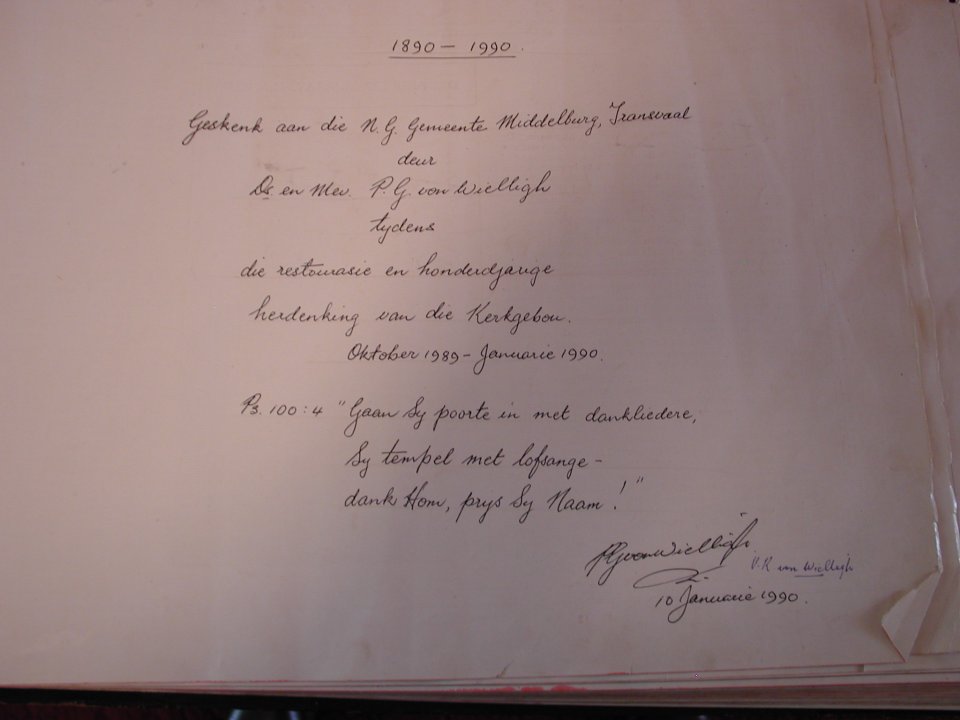 1890 - 1990.
Geskenk aan die N.G. Gemeente Middelburg, Transvaal
deur
Ds en Mev. P.G. von Wielligh
tydens
die restourasie en honderdjarige
herdenking van die Kerkgebou.
Oktober 1989 - Januarie 1990.
Ps. 100:4 "Gaan Sy poorte in met dankliedere,
Sy tempel met lofsange -
dank Hom, prys Sy Naam!"
PG von Wielligh
von Wielligh
10 Januarie 1990.